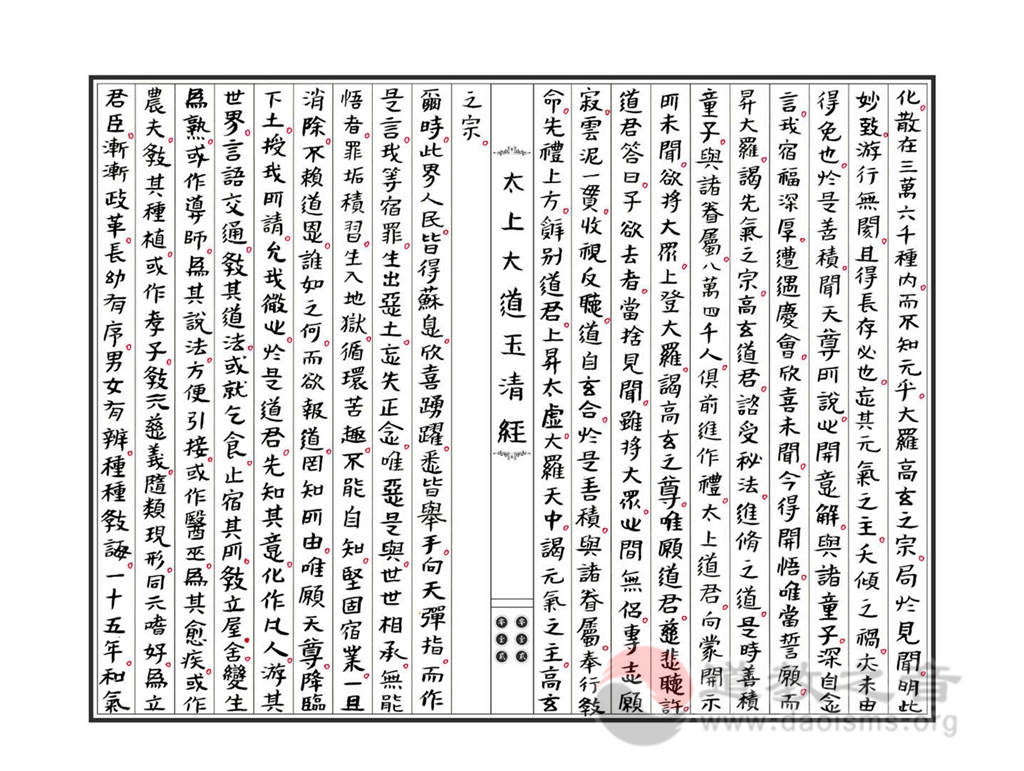 化散在三萬六千種内而不知元乎大羅高玄之宗局於見聞明此
妙致游行無閡且得長存必也忘其元氣之主夭傾之禍火未由
得免也於是善積聞天尊所說心開意解與諸童子深自念
言我宿福深厚遭遇慶會欣喜未聞今得開悟唯當誓願而
昇大羅謁先氣之宗高玄道君諮受秘法進脩之道是時善積
童子與諸眷屬八萬四千人俱前進作禮太上道君向蒙開示
所未聞欲將大眾上登大羅謁高玄之尊唯願道君慈悲聽許
道君答曰子欲去者當捨見聞雖將大眾心間無侶專志願
寂雲泥一貫收視反聽道自玄合於是善積與諸眷屬奉行教
命先禮上方辭别道君上昇太虛大羅天中謁元氣之主高玄
太上大道玉清經
之宗
爾時此界人民皆得蘇息欣喜踴躍悉皆舉手向天彈指而作
是言我等宿罪生出惡土忘失正念唯惡是與世世相承無能
悟者罪垢積習生入地獄循環苦趣不能自知堅固宿業一旦
消除不賴道恩誰如之何而欲報道罔知所由唯願天尊降臨
下土授我所請允我微心於是道君先知其意化作凡人游其
世界言語交通教其道法或就乞食止宿其所教立屋舍變生
爲熟或作導師爲其說法方便引接或作醫巫爲其愈疾或作
農夫教其種植或作孝子教示慈義隨類現形同元嗜好爲立
君臣漸漸政革長幼有序男女有辨種種教誨一十五年和氣
道教之音
www.daoisms.org